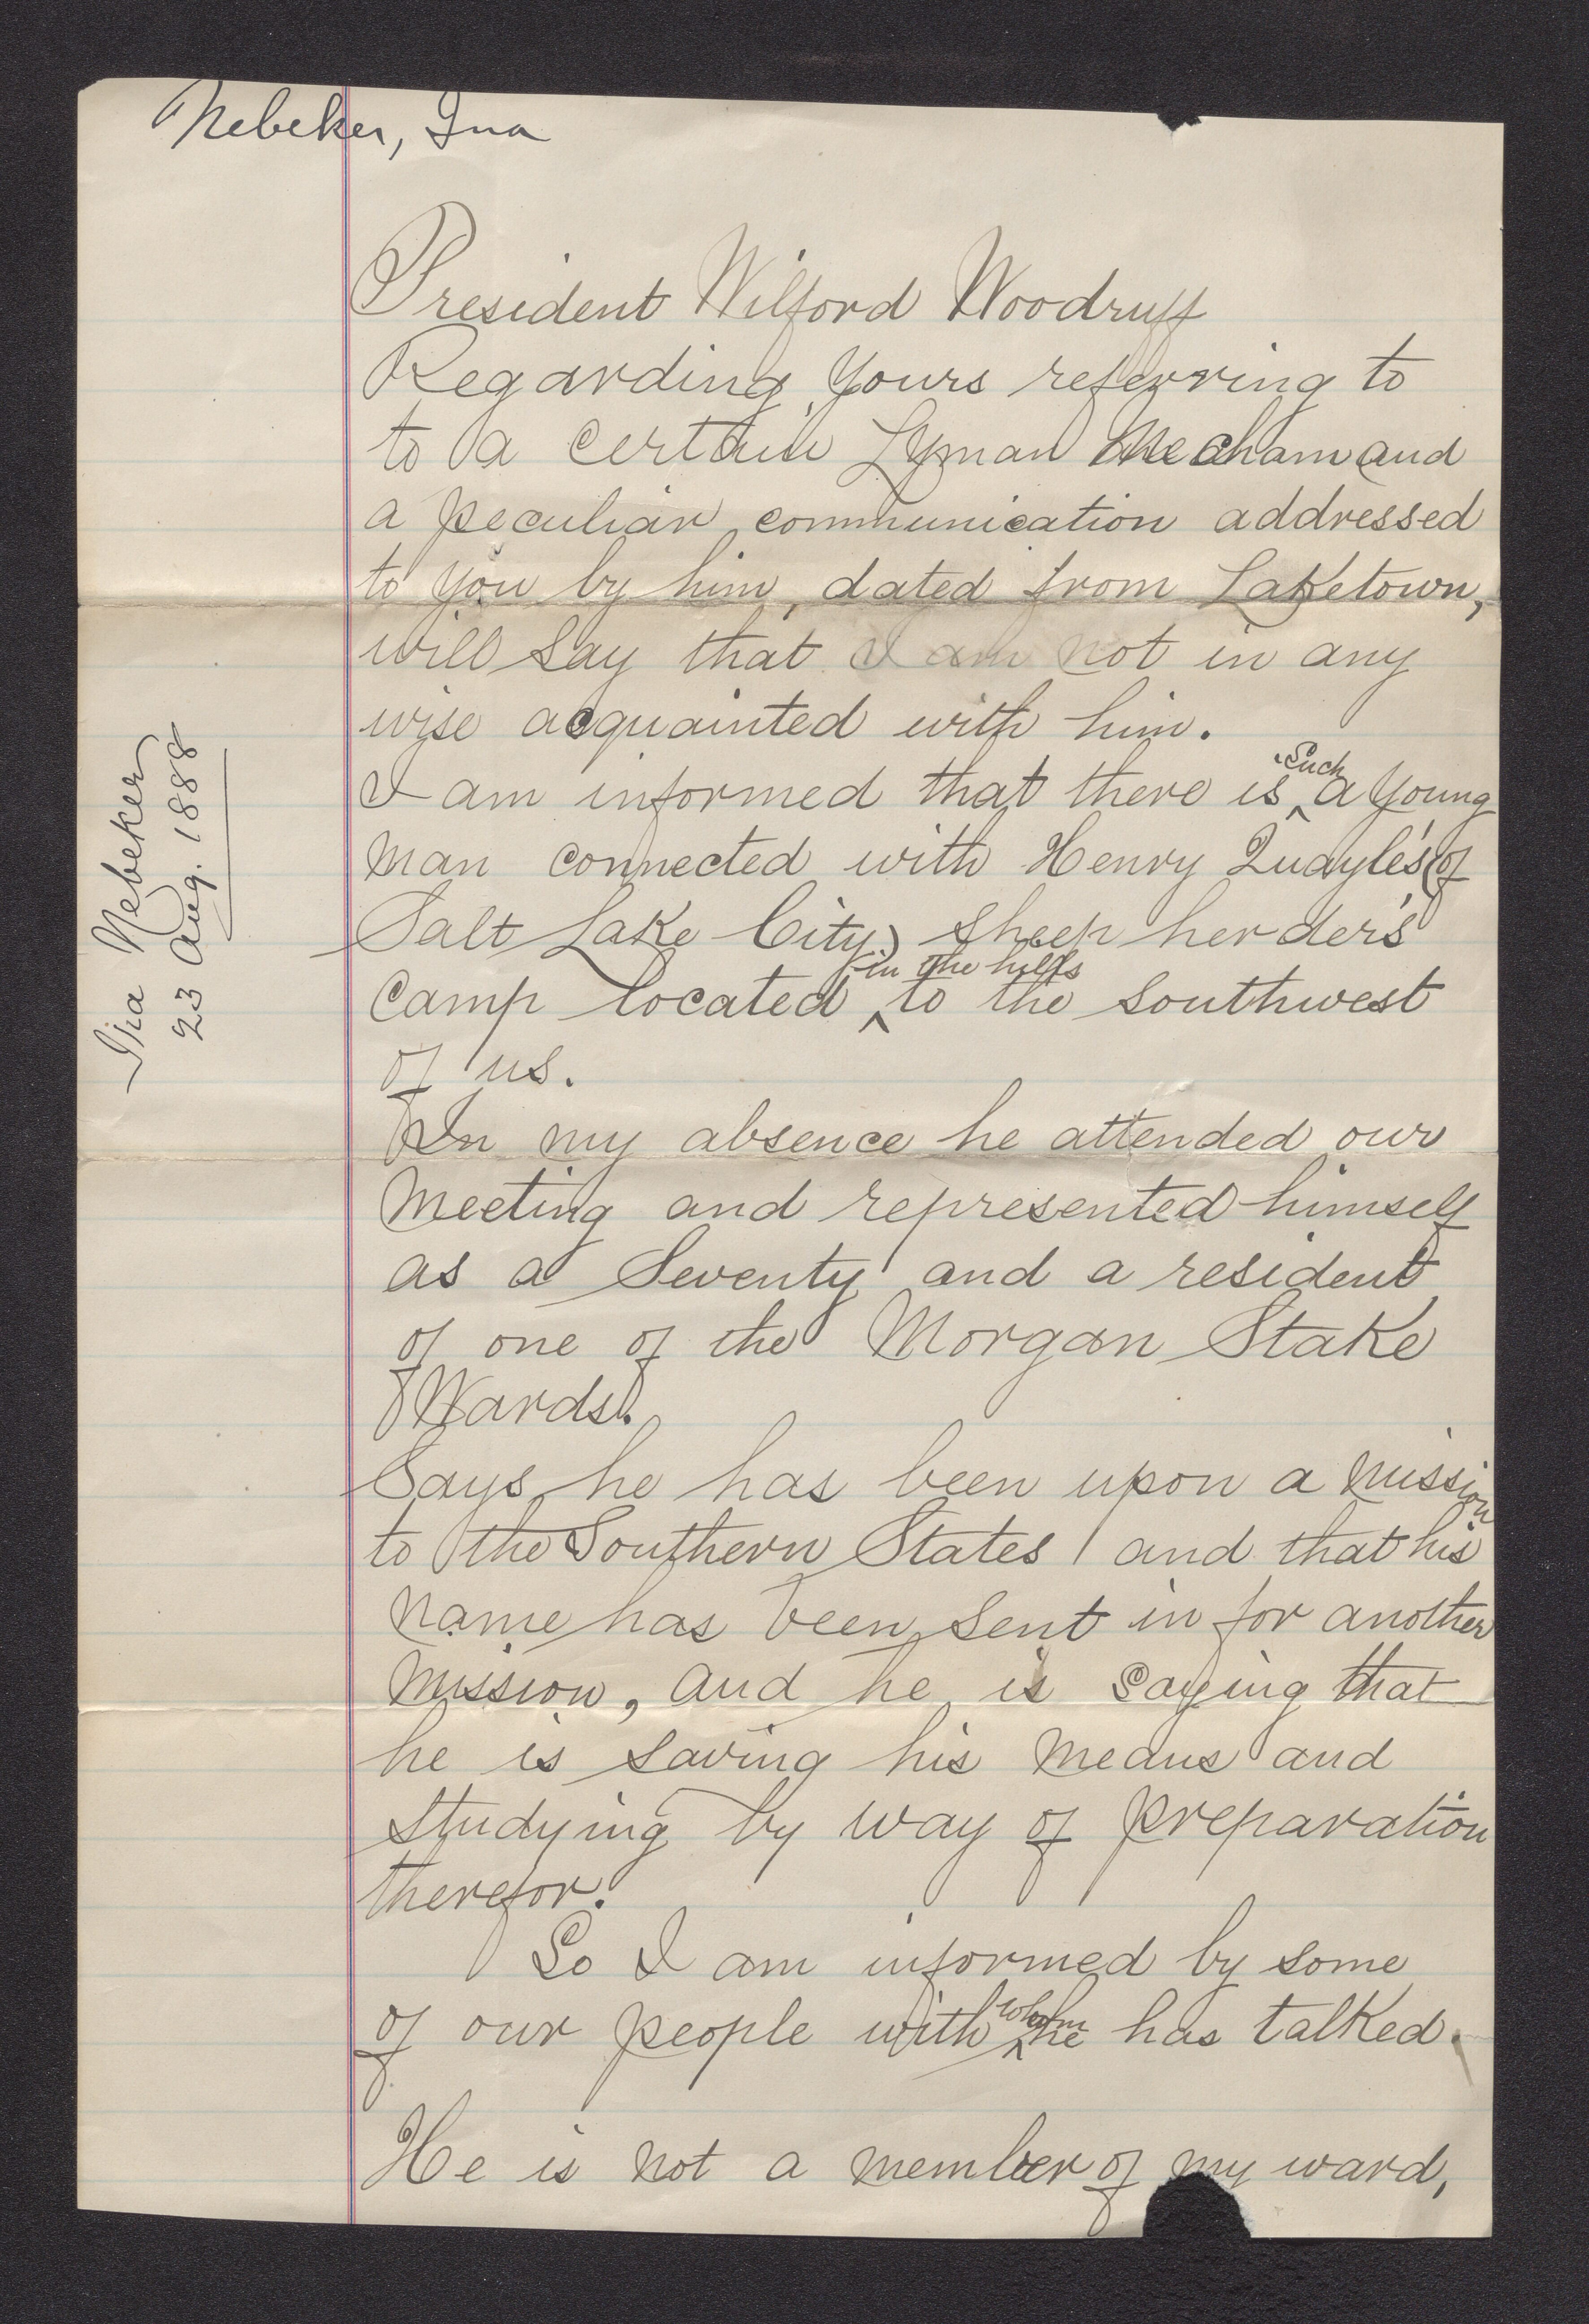 Nebeker, Ira
President Wilford Woodruff
Regarding yours referring to
to a certain Lyman Mecham and
a peculiar communication addressed
to you by him, dated from Laketown,
will say that I am not in any
wise acquainted with him.
I am informed that there is ^such a young
man connected with Henry Quayle's (of
Salt Lake City) sheep herder's
camp located ^in the hills to the southwest
of us.
In my absence he attended our
meeting and represented himself
as a Seventy and a resident
of one of the Morgan Stake
Wards.
Says he has been upon a mission
to the Southern States and that his
name has been sent in for another
mission, and he is saying that
he is saving his means and
studying by way of preparation
therefor.
So I am informed by some
of our people with ^whom he has talked.
He is not a member of my ward,
Ira Nebeker
23 Aug. 1888